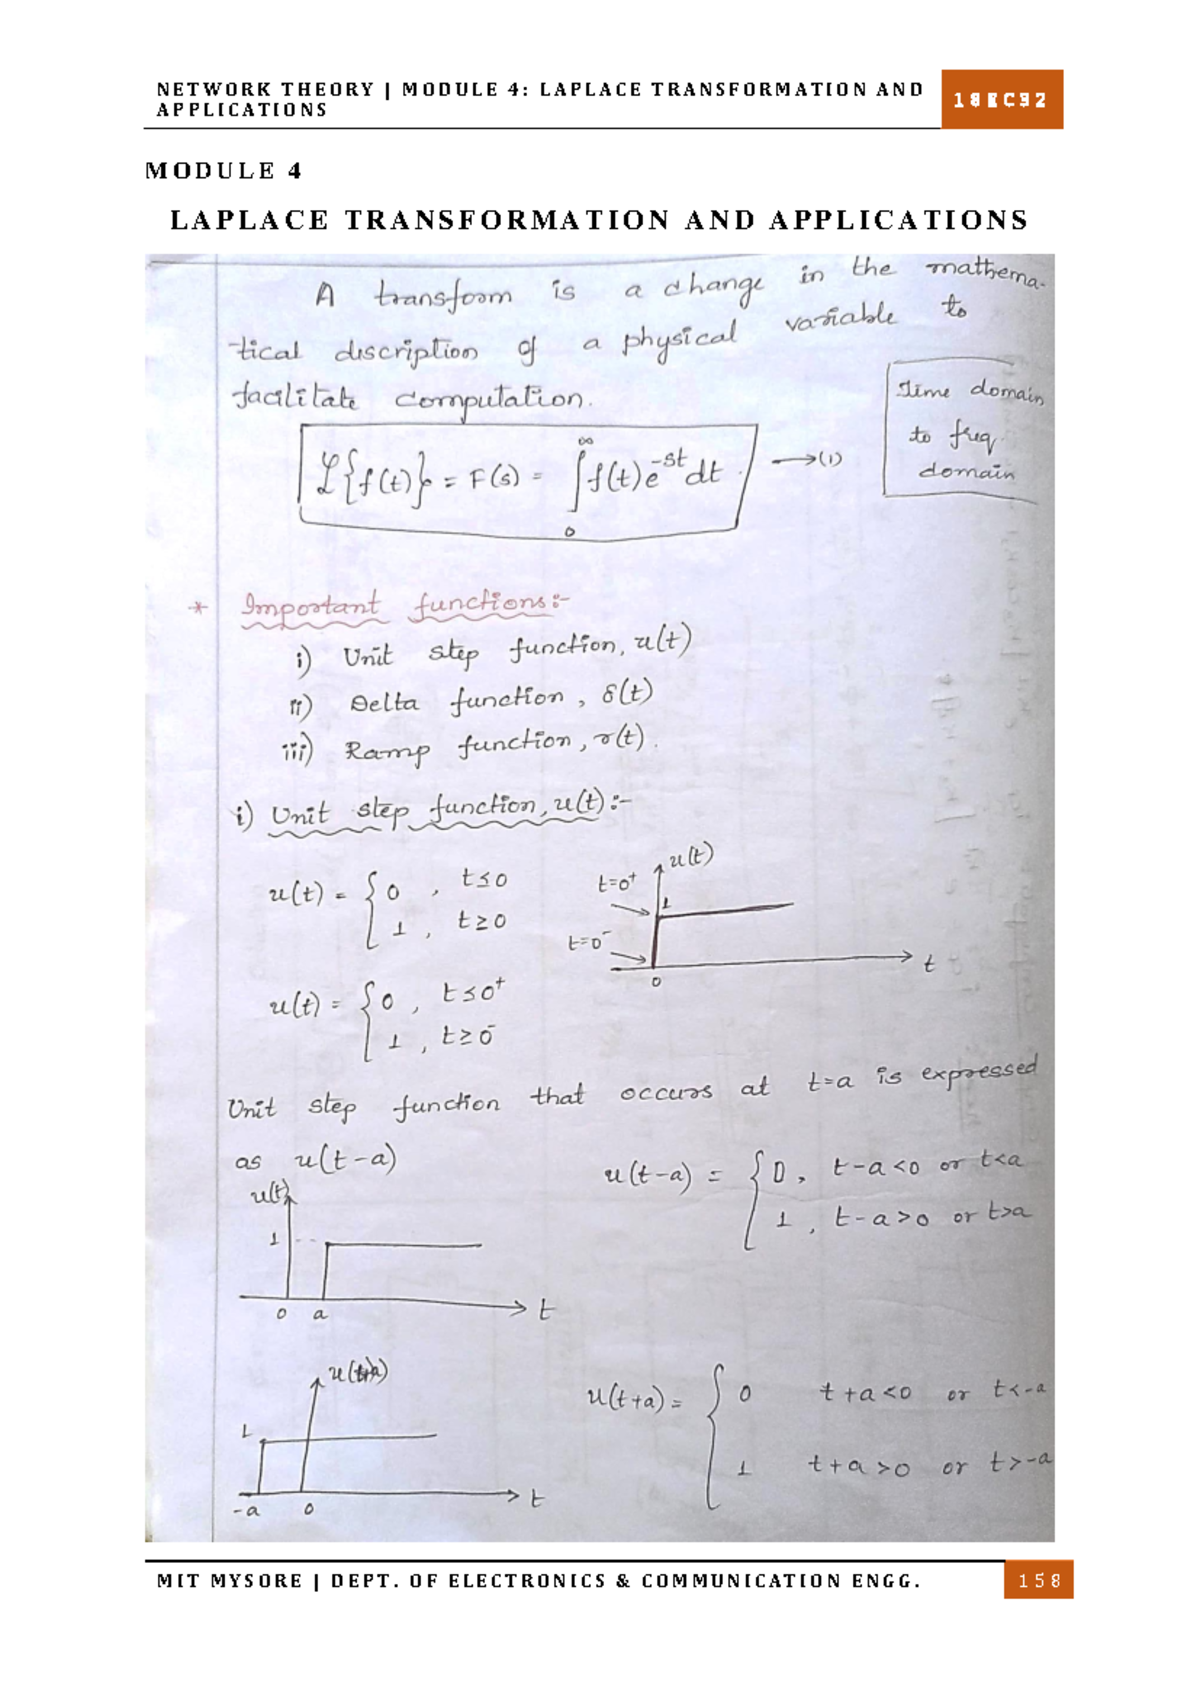 NETWORK THEORY | MODULE 4: LAPLACE TRANSFORMATION AND
APPLICATIONS
18EC32
MODULE 4
LAPLACE TRANSFORMATION AND APPLICATIONS
A transform is a change in the mathema-
tical discription of a physical variable to
facilitate computation.
Time domain
to freq.
domain
ℒ{f(t)} = F(s) = ∫₀^∞ f(t) e^{-st} dt. →(1)
* Important functions:-
i) Unit step function, u(t)
ii) Delta function, δ(t)
iii) Ramp function, r(t).
i) Unit step function, u(t):-
u(t) = { 0 , t≤0
1 , t≥0
u(t)
t=0⁺
1
t=0⁻
0
t
u(t) = { 0 , t≤0⁺
1 , t≥0⁻
Unit step function that occurs at t=a is expressed
as u(t-a)
u(t-a) = { 0, t-a<0 or t<a
1, t-a>0 or t>a
u(t)
1
0 a t
u(t+a)
1
-a 0 t
u(t+a) = { 0 t+a<0 or t<-a
1 t+a>0 or t>-a
MIT MYSORE | DEPT. OF ELECTRONICS & COMMUNICATION ENGG.
158